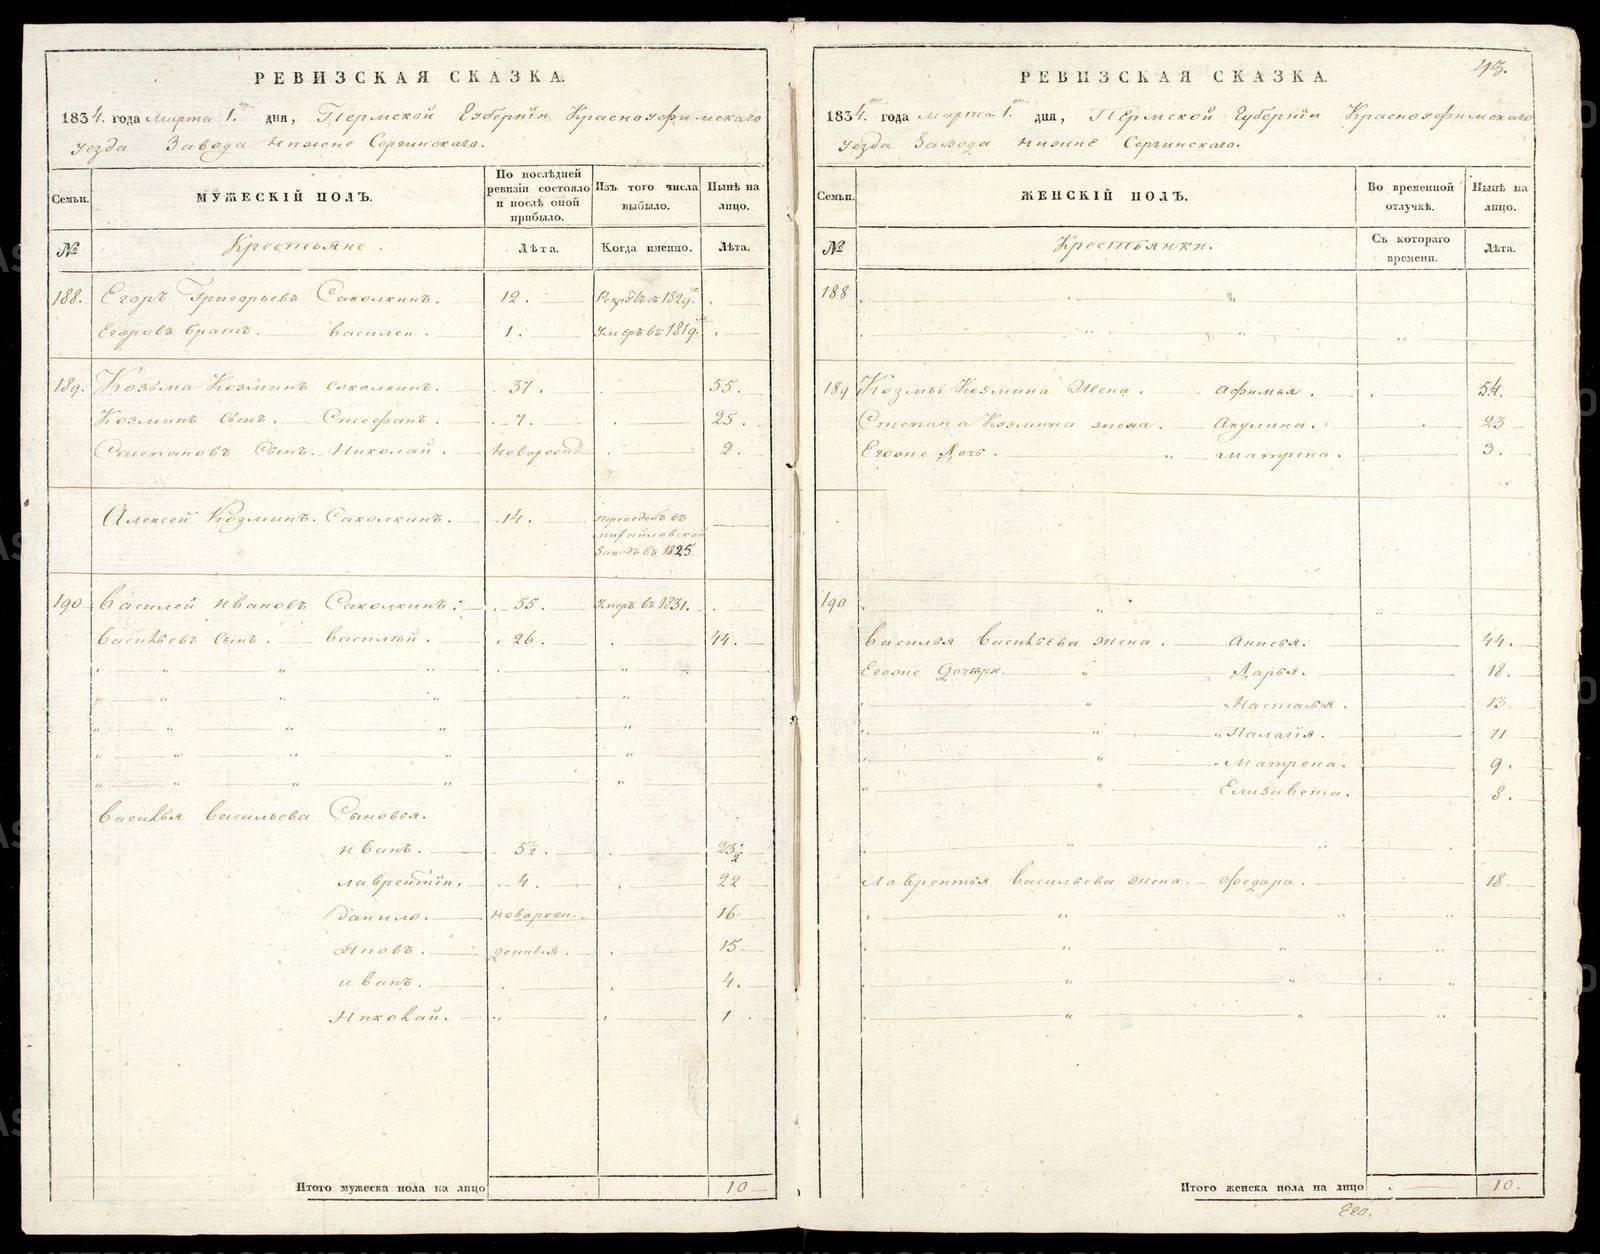 РЕВИЗСКАЯ СКАЗКА.
1834. года марта 1. дня, Пермской Губернїи Красноуфимскаго
уезда Завода нижне Сергинскаго.
Семьи.
МУЖЕСКІЙ ПОЛЪ.
По послѣдней ревизіи состояло и послѣ оной прибыло.
Изъ того числа выбыло.
Нынѣ на лицо.
№
Крестьяне.
Лѣта.
Когда именно.
Лѣта.
188. Егоръ Григорьевъ Саколкинъ. 12. 1829.
Егоровъ братъ. Василей. 1. Умеръ въ 1819.
189. Козьма Козминъ Соколкинъ. 37. 55.
Козминъ сынъ. Стефанъ. 7. 25.
Степановъ Сынъ. Николай. новорожд 2.
Алексей Козминъ. Саколкинъ. 14. переведенъ въ
михайловской
заводъ въ 1825
190 Василей Ивановъ Саколкинъ. 55. Умеръ въ 1831.
Васильевъ Сынъ. Василий. 26. 44.
Василья Васильева Сыновья.
Иванъ. 5½. 23½
лаврентїй. 4. 22
данило. новорож. 16
Яковъ. деннья. 15
иванъ. 4.
Николай. 1
Итого мужеска пола на лицо 10
43.
РЕВИЗСКАЯ СКАЗКА.
1834. года марта 1. дня, Пермской Губернїи Красноуфимскаго
уезда Завода нижне Сергинскаго.
Семьи.
ЖЕНСКІЙ ПОЛЪ.
Во временной отлучкѣ.
Нынѣ на лицо.
№
Крестьянки.
Съ котораго времени.
Лѣта.
188
189 Козмы Козмина Жена. Афимья. 54.
Степана Козмина жена. Акулина. 23
Егоже Дочь. матрена. 3.
190
Василья Васильева жена. Анисья. 44.
Егоже Дочери. Дарья. 18.
Настасья. 13.
Палагїя. 11
Матрена. 9.
Елизавета. 8.
Лаврентья Васильева жена. Федора. 18
Итого женска пола на лицо 10.